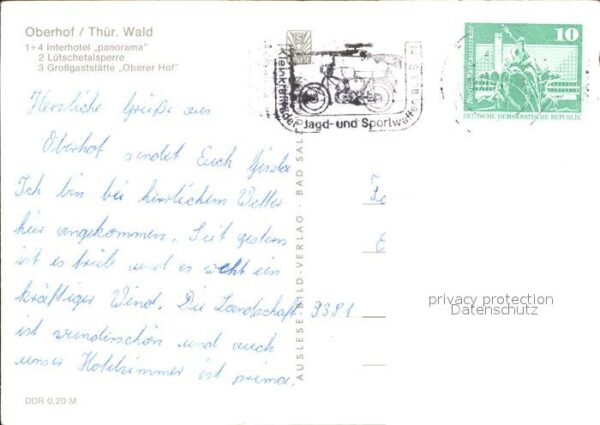 Oberhof / Thür. Wald
1+4 Interhotel „panorama"
2 Lütschetalsperre
3 Großgaststätte „Oberer Hof"
Herzliche Grüße aus
Oberhof sendet Euch Gisela
Ich bin bei herrlichem Wetter
hier angekommen. Seit gestern
ist es trüb und es weht ein
kräftiger Wind. Die Landschaft
ist wunderschön und auch
unser Hotelzimmer ist prima.
DDR 0,20 M
AUSLESE-BILD-VERLAG · BAD SAL
9381
Kleinkrafträder · Jagd- und Sportwaffen aus
10
DEUTSCHE DEMOKRATISCHE REPUBLIK
privacy protection
Datenschutz